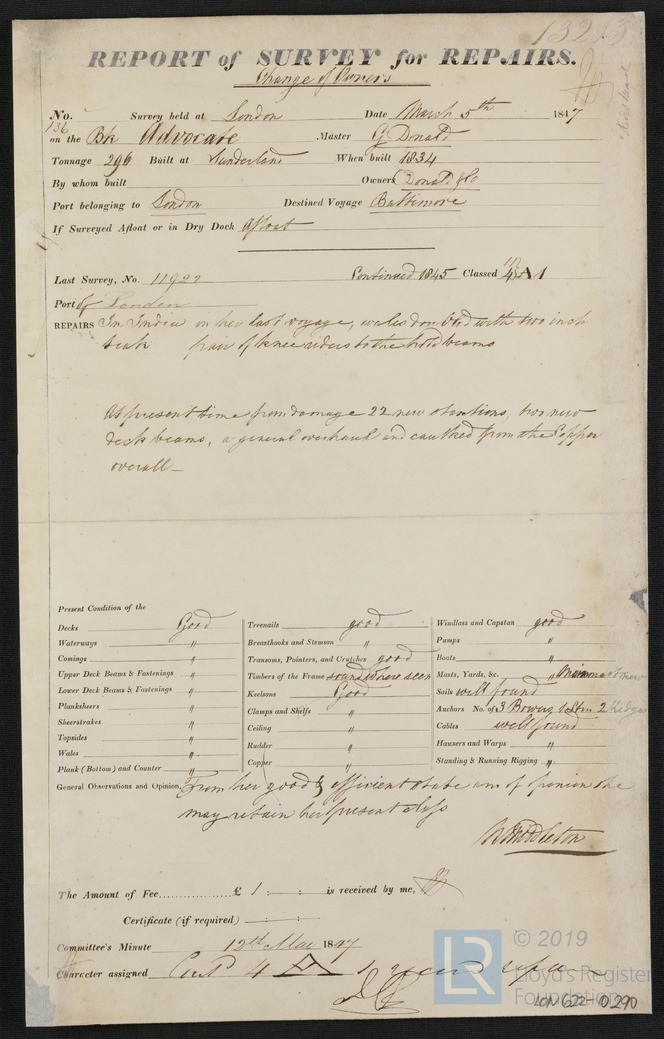 13213
REPORT of SURVEY for REPAIRS.
Change of Owners
No. 136 Survey held at London Date March 5th 1847
on the Bk Advocate Master G Donald
Tonnage 296 Built at Sunderland When built 1834
By whom built Owners Donald & Co
Port belonging to London Destined Voyage Baltimore
If Surveyed Afloat or in Dry Dock Afloat
Last Survey, No. 11922 Continued 1845 Classed A 1
Port of London
REPAIRS In India on her last voyage, wales doubled with two inch
teak pair of knee riders to the hold beams
At present time from damage 22 new stantions, two new
deck beams, a general overhaul and caulked from the Copper
overall
Present Condition of the
Decks Good
Waterways "
Comings "
Upper Deck Beams & Fastenings "
Lower Deck Beams & Fastenings "
Planksheers "
Sheerstrakes "
Topsides "
Wales "
Plank (Bottom) and Counter "
Treenails good
Breasthooks and Stemson "
Transoms, Pointers, and Crutches good
Timbers of the Frame sound where seen
Keelsons Good
Clamps and Shelfs "
Ceiling "
Rudder "
Copper "
Windlass and Capstan good
Pumps "
Boats "
Masts, Yards, &c. "
Sails well found
Anchors No. of 3 Bower 1 Stm 2 Kedges
Cables well found
Hausers and Warps "
Standing & Running Rigging "
General Observations and Opinion, From her good & efficient state am of opinion she
may retain her present class
W Middleton
The Amount of Fee £ 1 : : is received by me,
Certificate (if required)
Committee's Minute 12th Mar 1847
Character assigned 4 A 1
LR © 2019
Lloyd's Register
Foundation
LON 622-0290